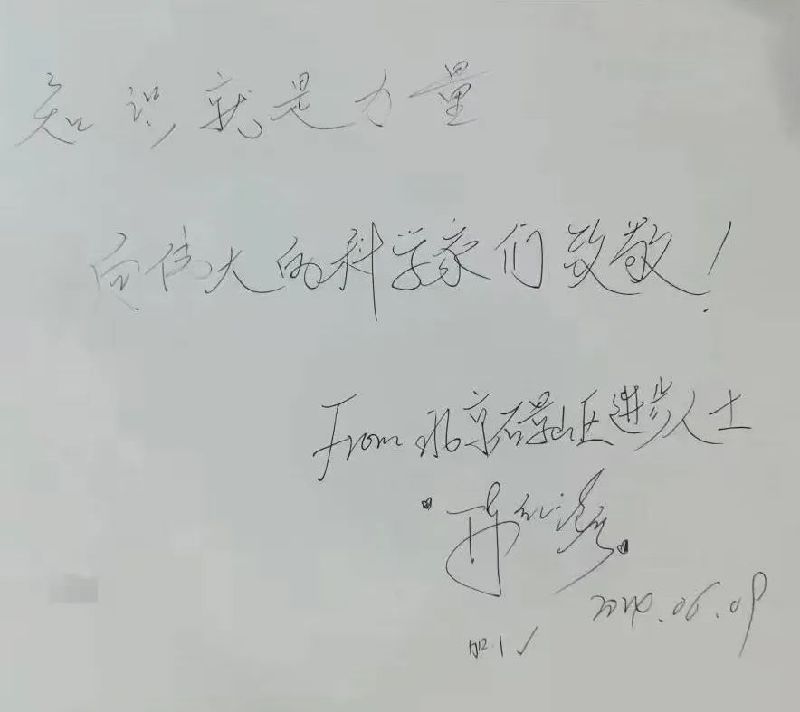 知识就是力量
向伟大的科学家们致敬!
From 北京石景山区进步人士
2020.06.09
加1✓